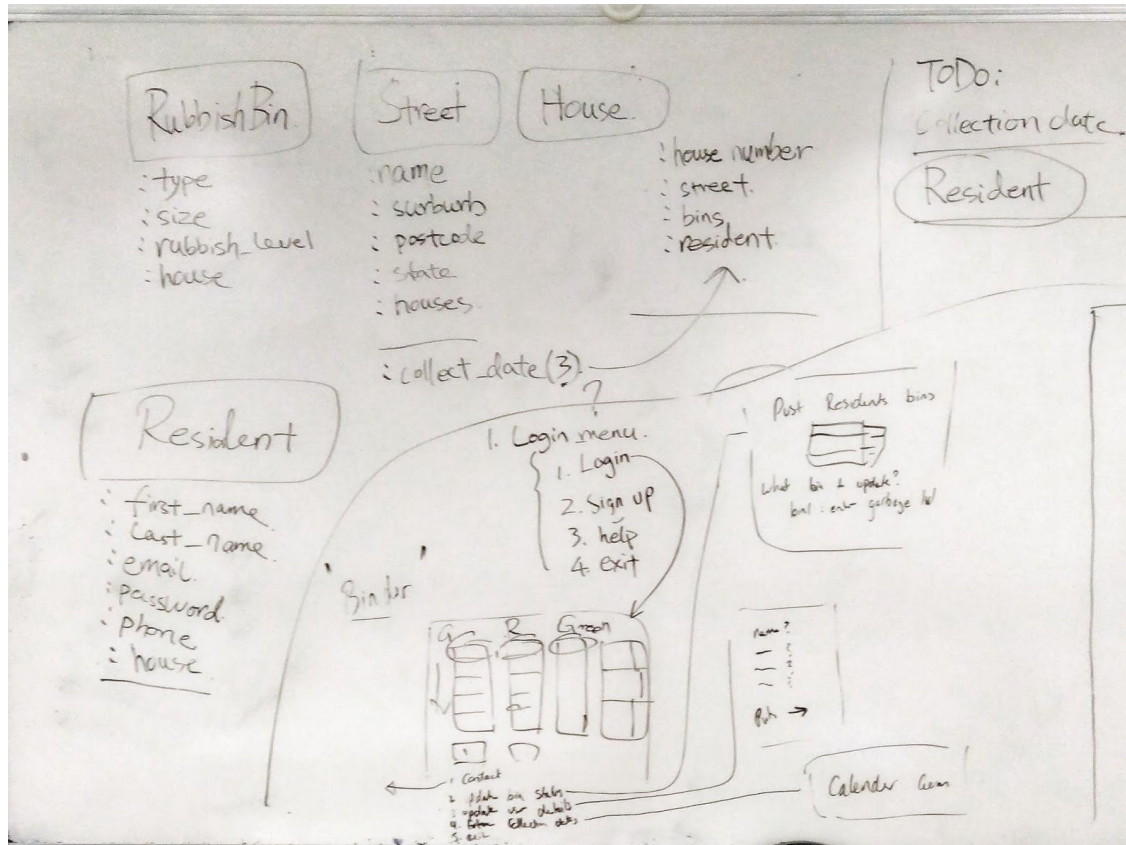 RubbishBin.
: type
: size
: rubbish_level
: house
Street
: name
: surburb
: postcode
: state
: houses
: collect_date(3)
?
House.
: house number
: street.
: bins
: resident.
ToDo:
Collection date
Resident
Resident
: first_name
: Last_name
: email.
: password
: phone
: house
1. Login menu.
1. Login
2. Sign up
3. help
4. exit
'Binder'
G R Green
1 Contact
2 update bin status
3 update user details
4. Collection dates
5. exit
Residents bins
What bin to update?
bin1 : enter garbage lvl
name?
Calender